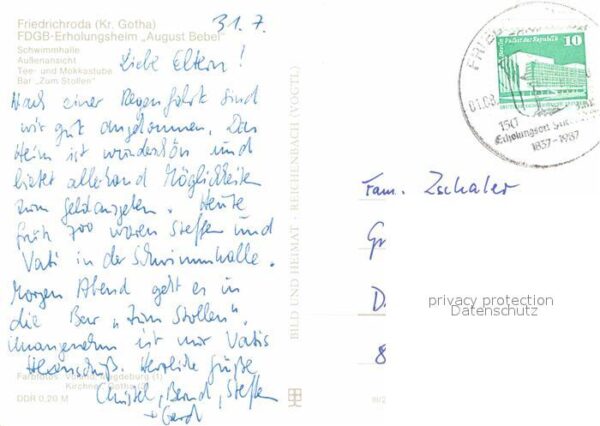 Friedrichroda (Kr. Gotha)
FDGB-Erholungsheim „August Bebel"
Schwimmhalle
Außenansicht
Tee- und Mokkastube
Bar „Zum Stollen"
31. 7.
Liebe Eltern!
Nach einer Regenfahrt sind
wir gut angekommen. Das
Heim ist wunderschön und
bietet allerhand Möglichkeiten
zum Geldausgeben. Heute
früh 7⁰⁰ waren Steffen und
Vati in der Schwimmhalle.
Morgen Abend geht es in
die Bar „Zum Stollen".
Unangenehm ist nur Vatis
Hexenschuß. Herzliche Grüße
Christel, Bernd, Steffen
+ Gerd
Farbfotos: Magdeburg (1)
Kirchner, Gotha
DDR 0,20 M
BILD UND HEIMAT · REICHENBACH (VOGTL)
Berlin, Palast der Republik
10
DDR
01.08.
150
Erholungsort
1837-1987
Fam. Zschaler
Gr
D
8
privacy protection
Datenschutz